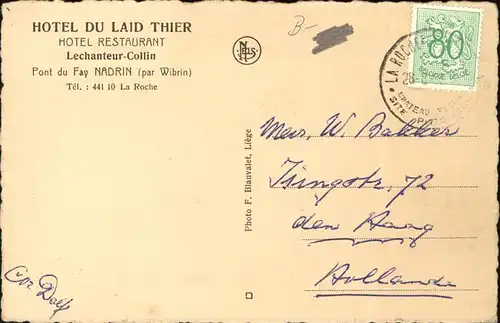 HOTEL DU LAID THIER
HOTEL RESTAURANT
Lechanteur-Collin
Pont du Fay NADRIN (par Wibrin)
Tél. : 441 10 La Roche
B-
NELS
LA ROCHE
28
CHATEAU
SITE
80
BELGIE-BELGIQUE
Photo F. Blanvalet, Liège
W. Bakker
72
den Haag
Hollande
Cor Dolf